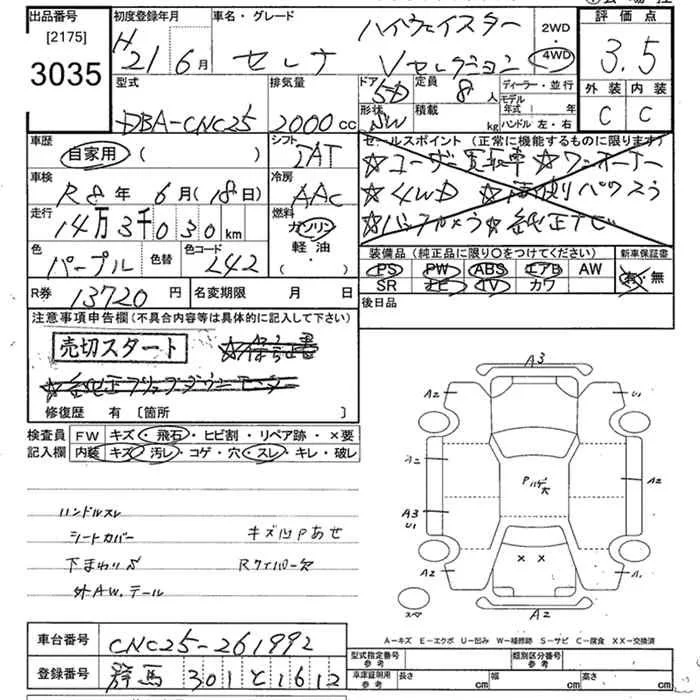 出品番号
[2175]
3035
初度登録年月
H21 6月
車名・グレード
ハイウェイスター
セレナ Vセレクション
2WD
・
4WD
評価点
3.5
外装 内装
C C
型式
DBA-CNC25
排気量
2000 cc
ドア
5D
形状
SW
定員
8人
積載
kg
ディーラー・並行
モデル年式 年
ハンドル 左・右
車歴
自家用 ( )
シフト
IAT
車検
R8年 6月(18日)
冷房
AAC
走行
14万3千030km
燃料
ガソリン
軽油・
( )
色
パープル
色替
色コード
L42
セールスポイント (正常に機能するものに限ります)
☆ユーザー買取車 ☆ワンオーナー
☆4WD ☆両側パワスラ
☆バックカメラ ☆純正ナビ
装備品 (純正品に限り〇をつけてください)
PS PW ABS エアB AW
SR ナビ TV カワ
新車保証書
有・無
R券 13720円
名変期限 月 日
後日品
注意事項申告欄 (不具合内容等は具体的に記入して下さい)
売切スタート
☆保証書
修復歴 有 〔箇所 〕
検査員
記入欄
FW キズ・飛石・ヒビ割・リペア跡・×要
内装 キズ・汚レ・コゲ・穴・スレ・キレ・破レ
ハンドルスレ
シートカバー キズ凹Pあせ
下まわりS Rワイパー欠
外AW、テール
A3
A2 U1
A2
Pハゲ大
A2
A3
U1
× ×
A2 A1
スペア
A2
A-キズ E-エクボ U-凹み W-補修跡 S-サビ C-腐食 XX-交換済
車台番号 CNC25-261992
登録番号 群馬 301 と 1612
型式指定番号
参考
類別区分番号
参考
車庫証明用
参考
長さ cm 幅 cm 高さ cm